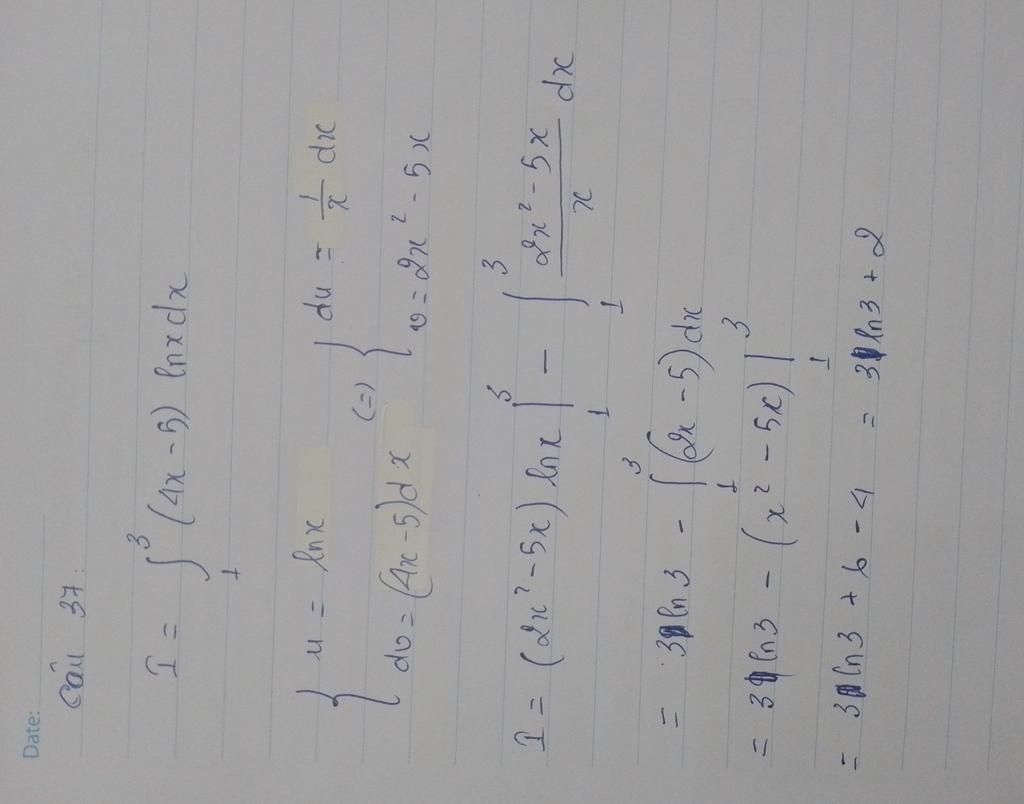 Date:
Câu 37:
I = ∫₁³ (4x - 5) lnx dx
{ u = lnx (=) { du = 1/x dx
{ dv = (4x - 5)dx { v = 2x² - 5x
I = (2x² - 5x) lnx |₁³ - ∫₁³ (2x² - 5x)/x dx
= 3 ln3 - ∫₁³ (2x - 5)dx
= 3 ln3 - (x² - 5x) |₁³
= 3 ln3 + 6 - 4 = 3 ln3 + 2